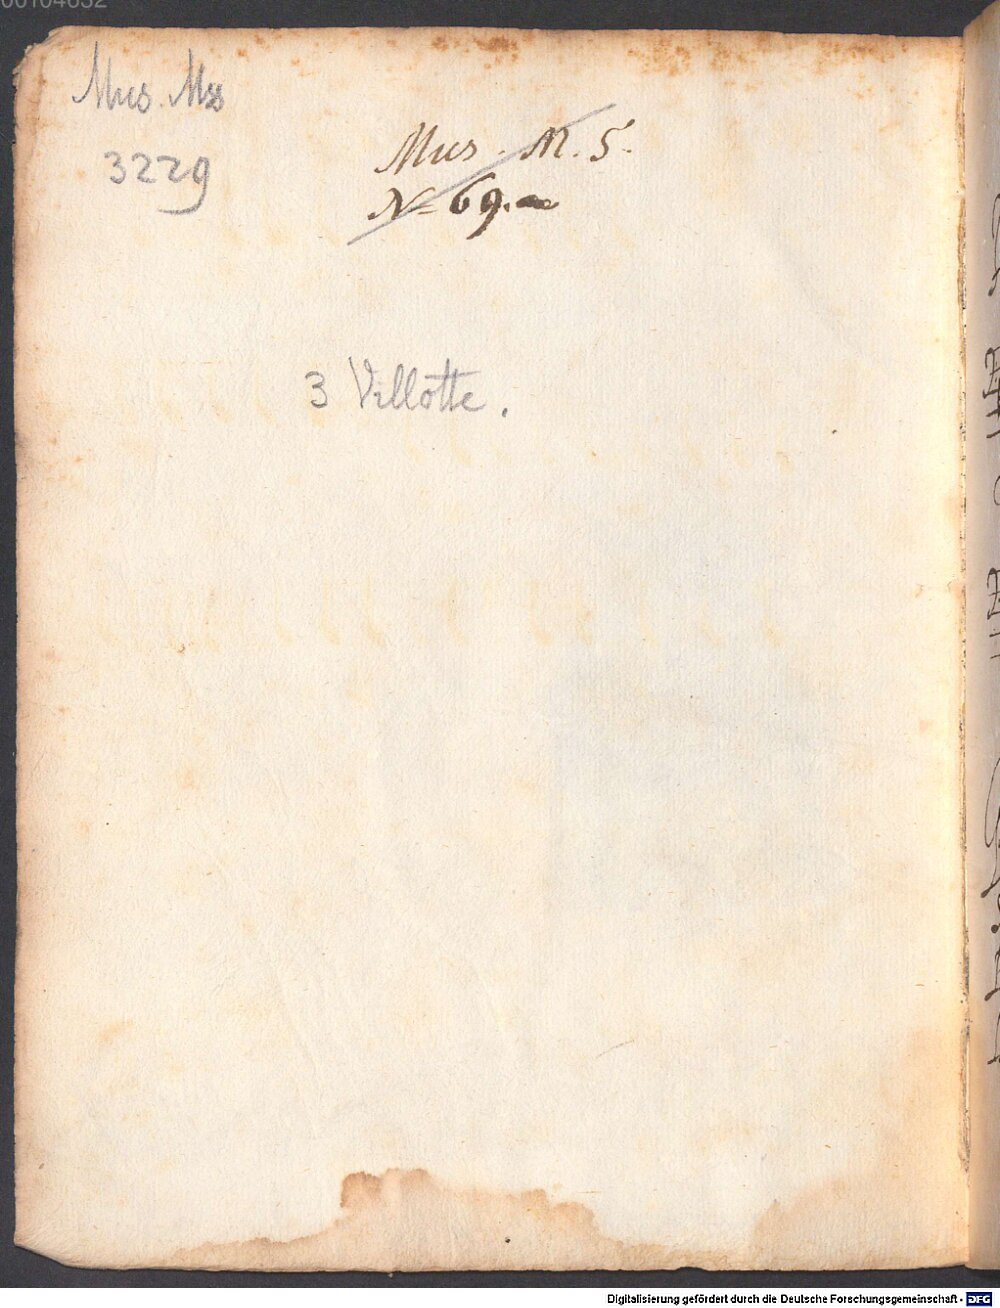 Mus. Mss
3229
Mus. M. S.
N= 69.
3 Villotte.
Digitalisierung gefördert durch die Deutsche Forschungsgemeinschaft - DFG